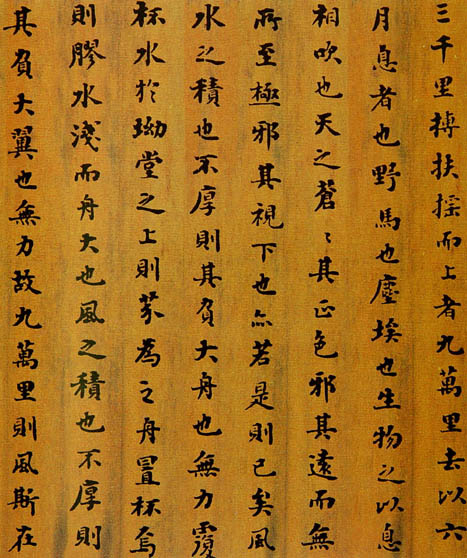 三千里搏扶搖而上者九萬里去以六
月息者也野馬也塵埃也生物之以息
相吹也天之蒼〻其正色邪其遠而無
所至極邪其視下也亦若是則已矣風
水之積也不厚則其負大舟也無力覆
杯水於坳堂之上則芥為之舟置杯焉
則膠水淺而舟大也風之積也不厚則
其負大翼也無力故九萬里則風斯在